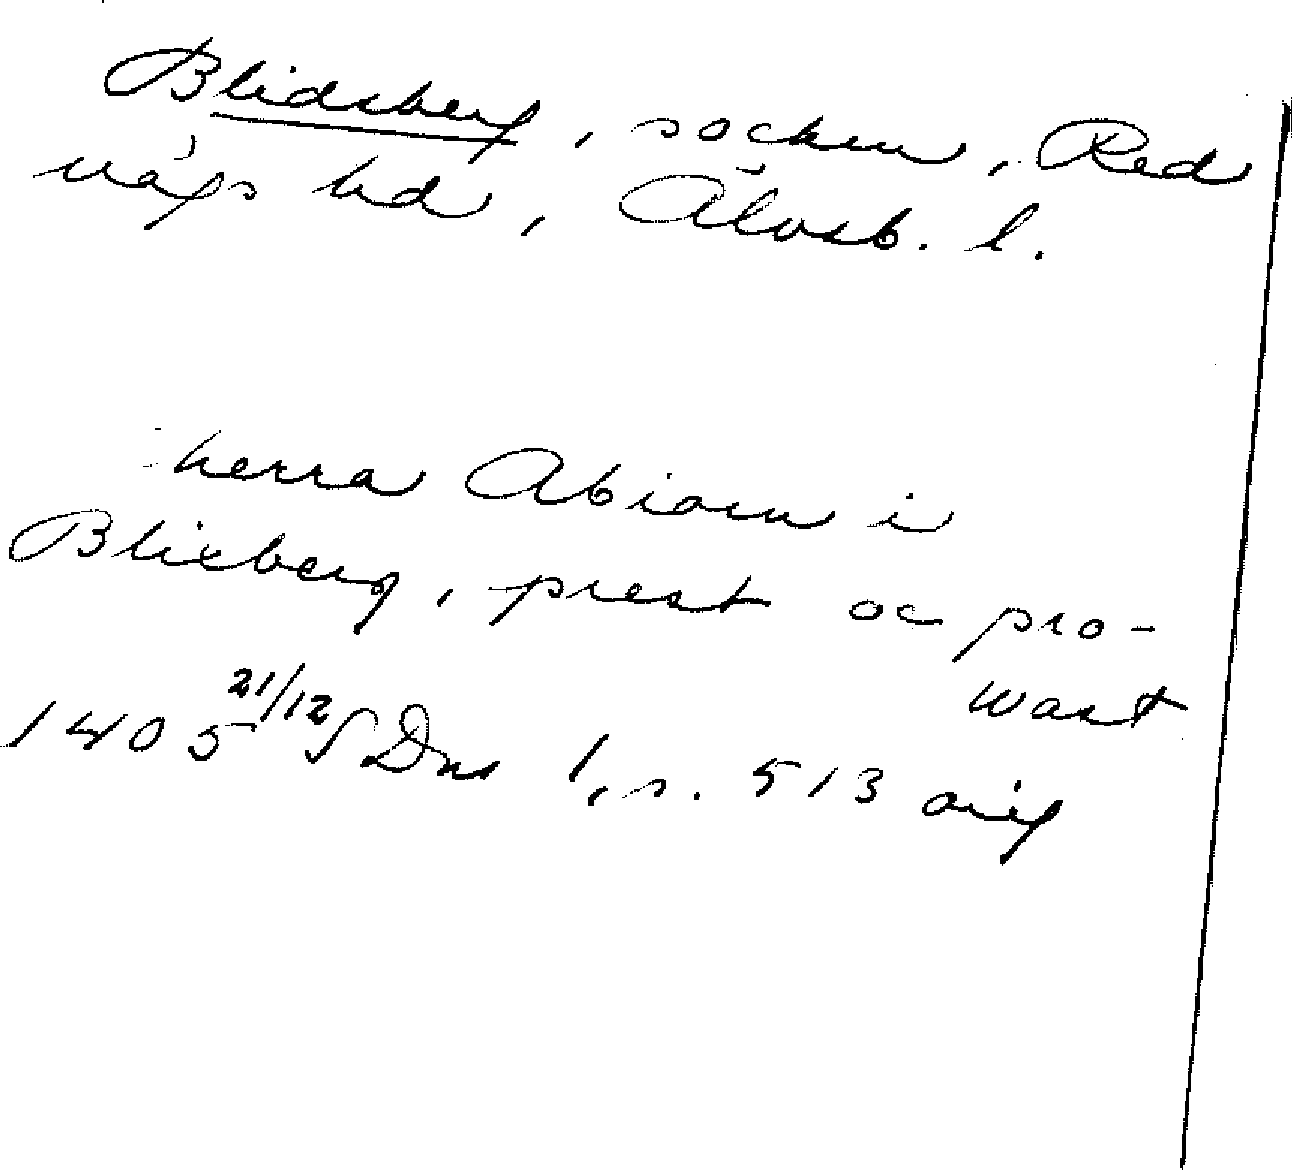 Blidsberg, socken, Red
vägs hd, Älvsb. l.
herra Abiorn i
Blixberg, prest oc pro-
wast
1405 21/12 SDns 1, s. 513 orig